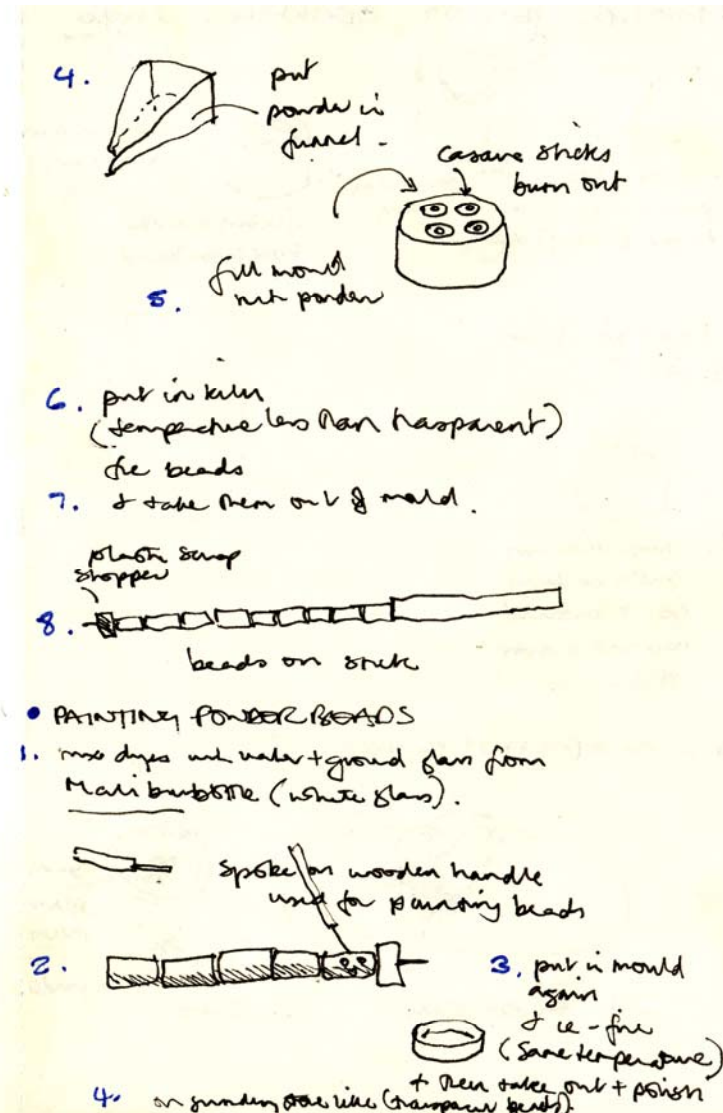 4. put
powder in
funnel -
casava sticks
burn out
fill mould
5. with powder
6. put in kiln
(temperature less than trasparent)
fire beads
7. & take them out of mould.
plastic scrap
stopper
8.
beads on stick
• PAINTING POWDER BEADS
1. mix dyes with water + ground glass from
Malibu bottle (white glass).
spoke on wooden handle
used for painting beads
2.
3. put in mould
again
& re-fire
(same temperature)
+ then take out + polish
4. on grinding stone like (transparent beads).